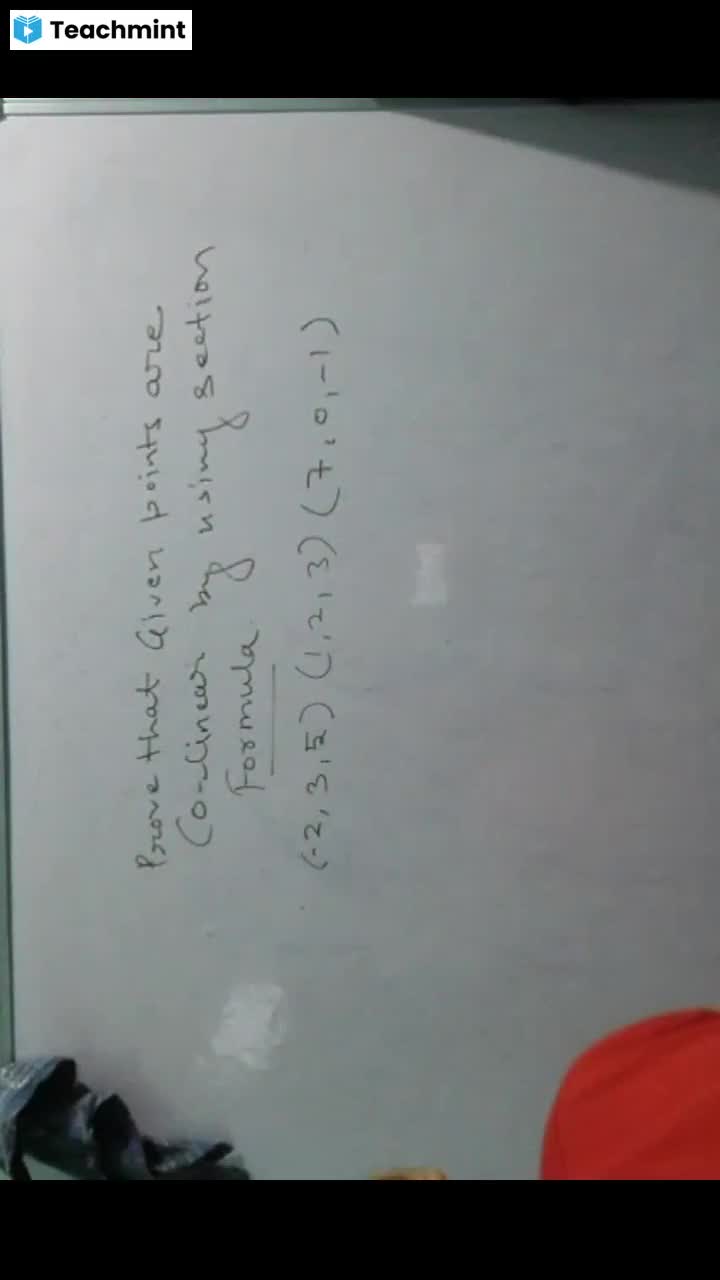 Teachmint
Prove that Given points are
Co-linear by using section
Formula.
(-2, 3, 5) (1, 2, 3) (7, 0, -1)